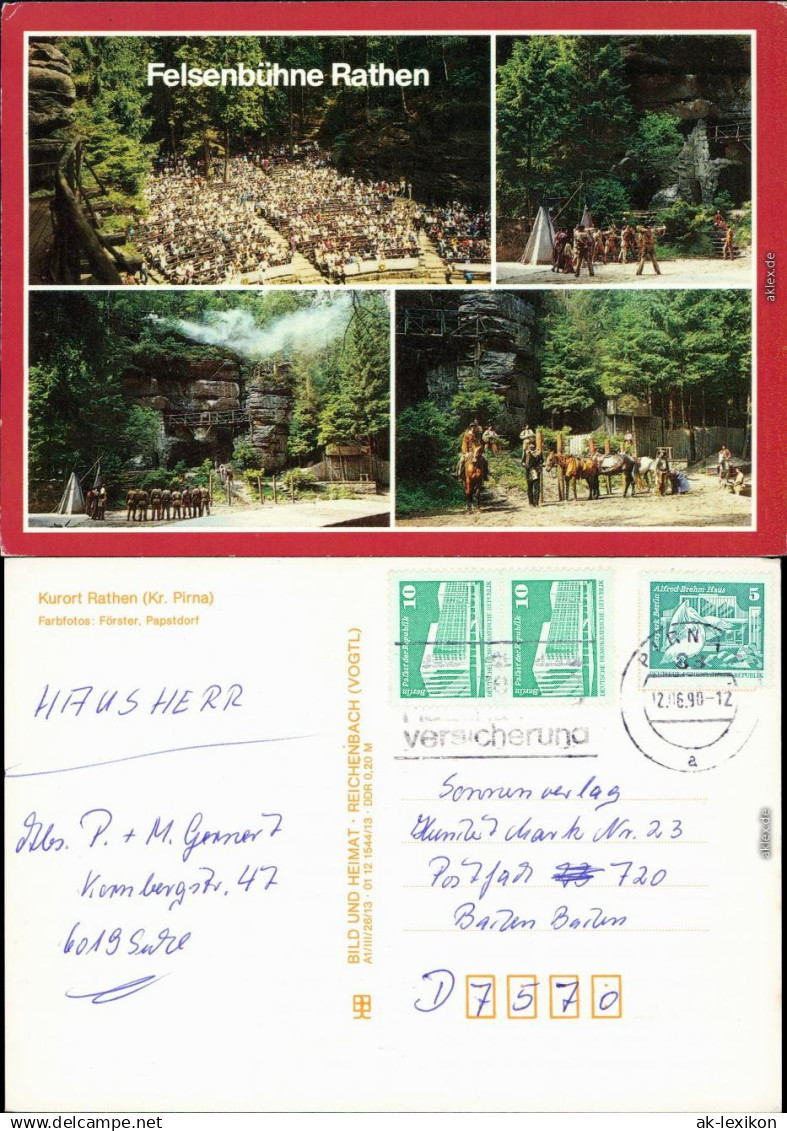 Felsenbühne Rathen
aklex.de
Kurort Rathen (Kr. Pirna)
Farbfotos: Förster, Papstdorf
HAUSHERR
Abs. P. + M. Gennert
Kornbergstr. 47
6019 Suhl
BILD UND HEIMAT · REICHENBACH (VOGTL)
A1/III/26/13 · 01 12 1544/13 · DDR 0,20 M
10
Palast der Republik
Berlin
DEUTSCHE DEMOKRATISCHE REPUBLIK
10
Palast der Republik
Berlin
DEUTSCHE DEMOKRATISCHE REPUBLIK
Alfred-Brehm-Haus
5
12.06.90-12
a
versicherung
Sonnenverlag
Hundert Mark Nr. 23
Postfach 720
Baden Baden
D 7570
aklex.de
ak-lexikon